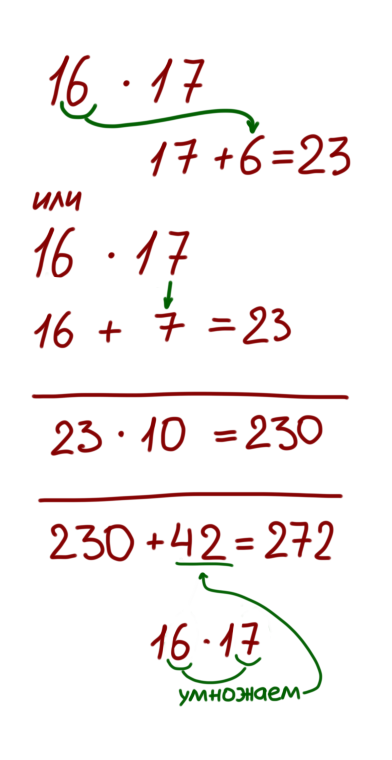 16 · 17
17 + 6 = 23
или
16 · 17
16 + 7 = 23
23 · 10 = 230
230 + 42 = 272
16 · 17
умножаем